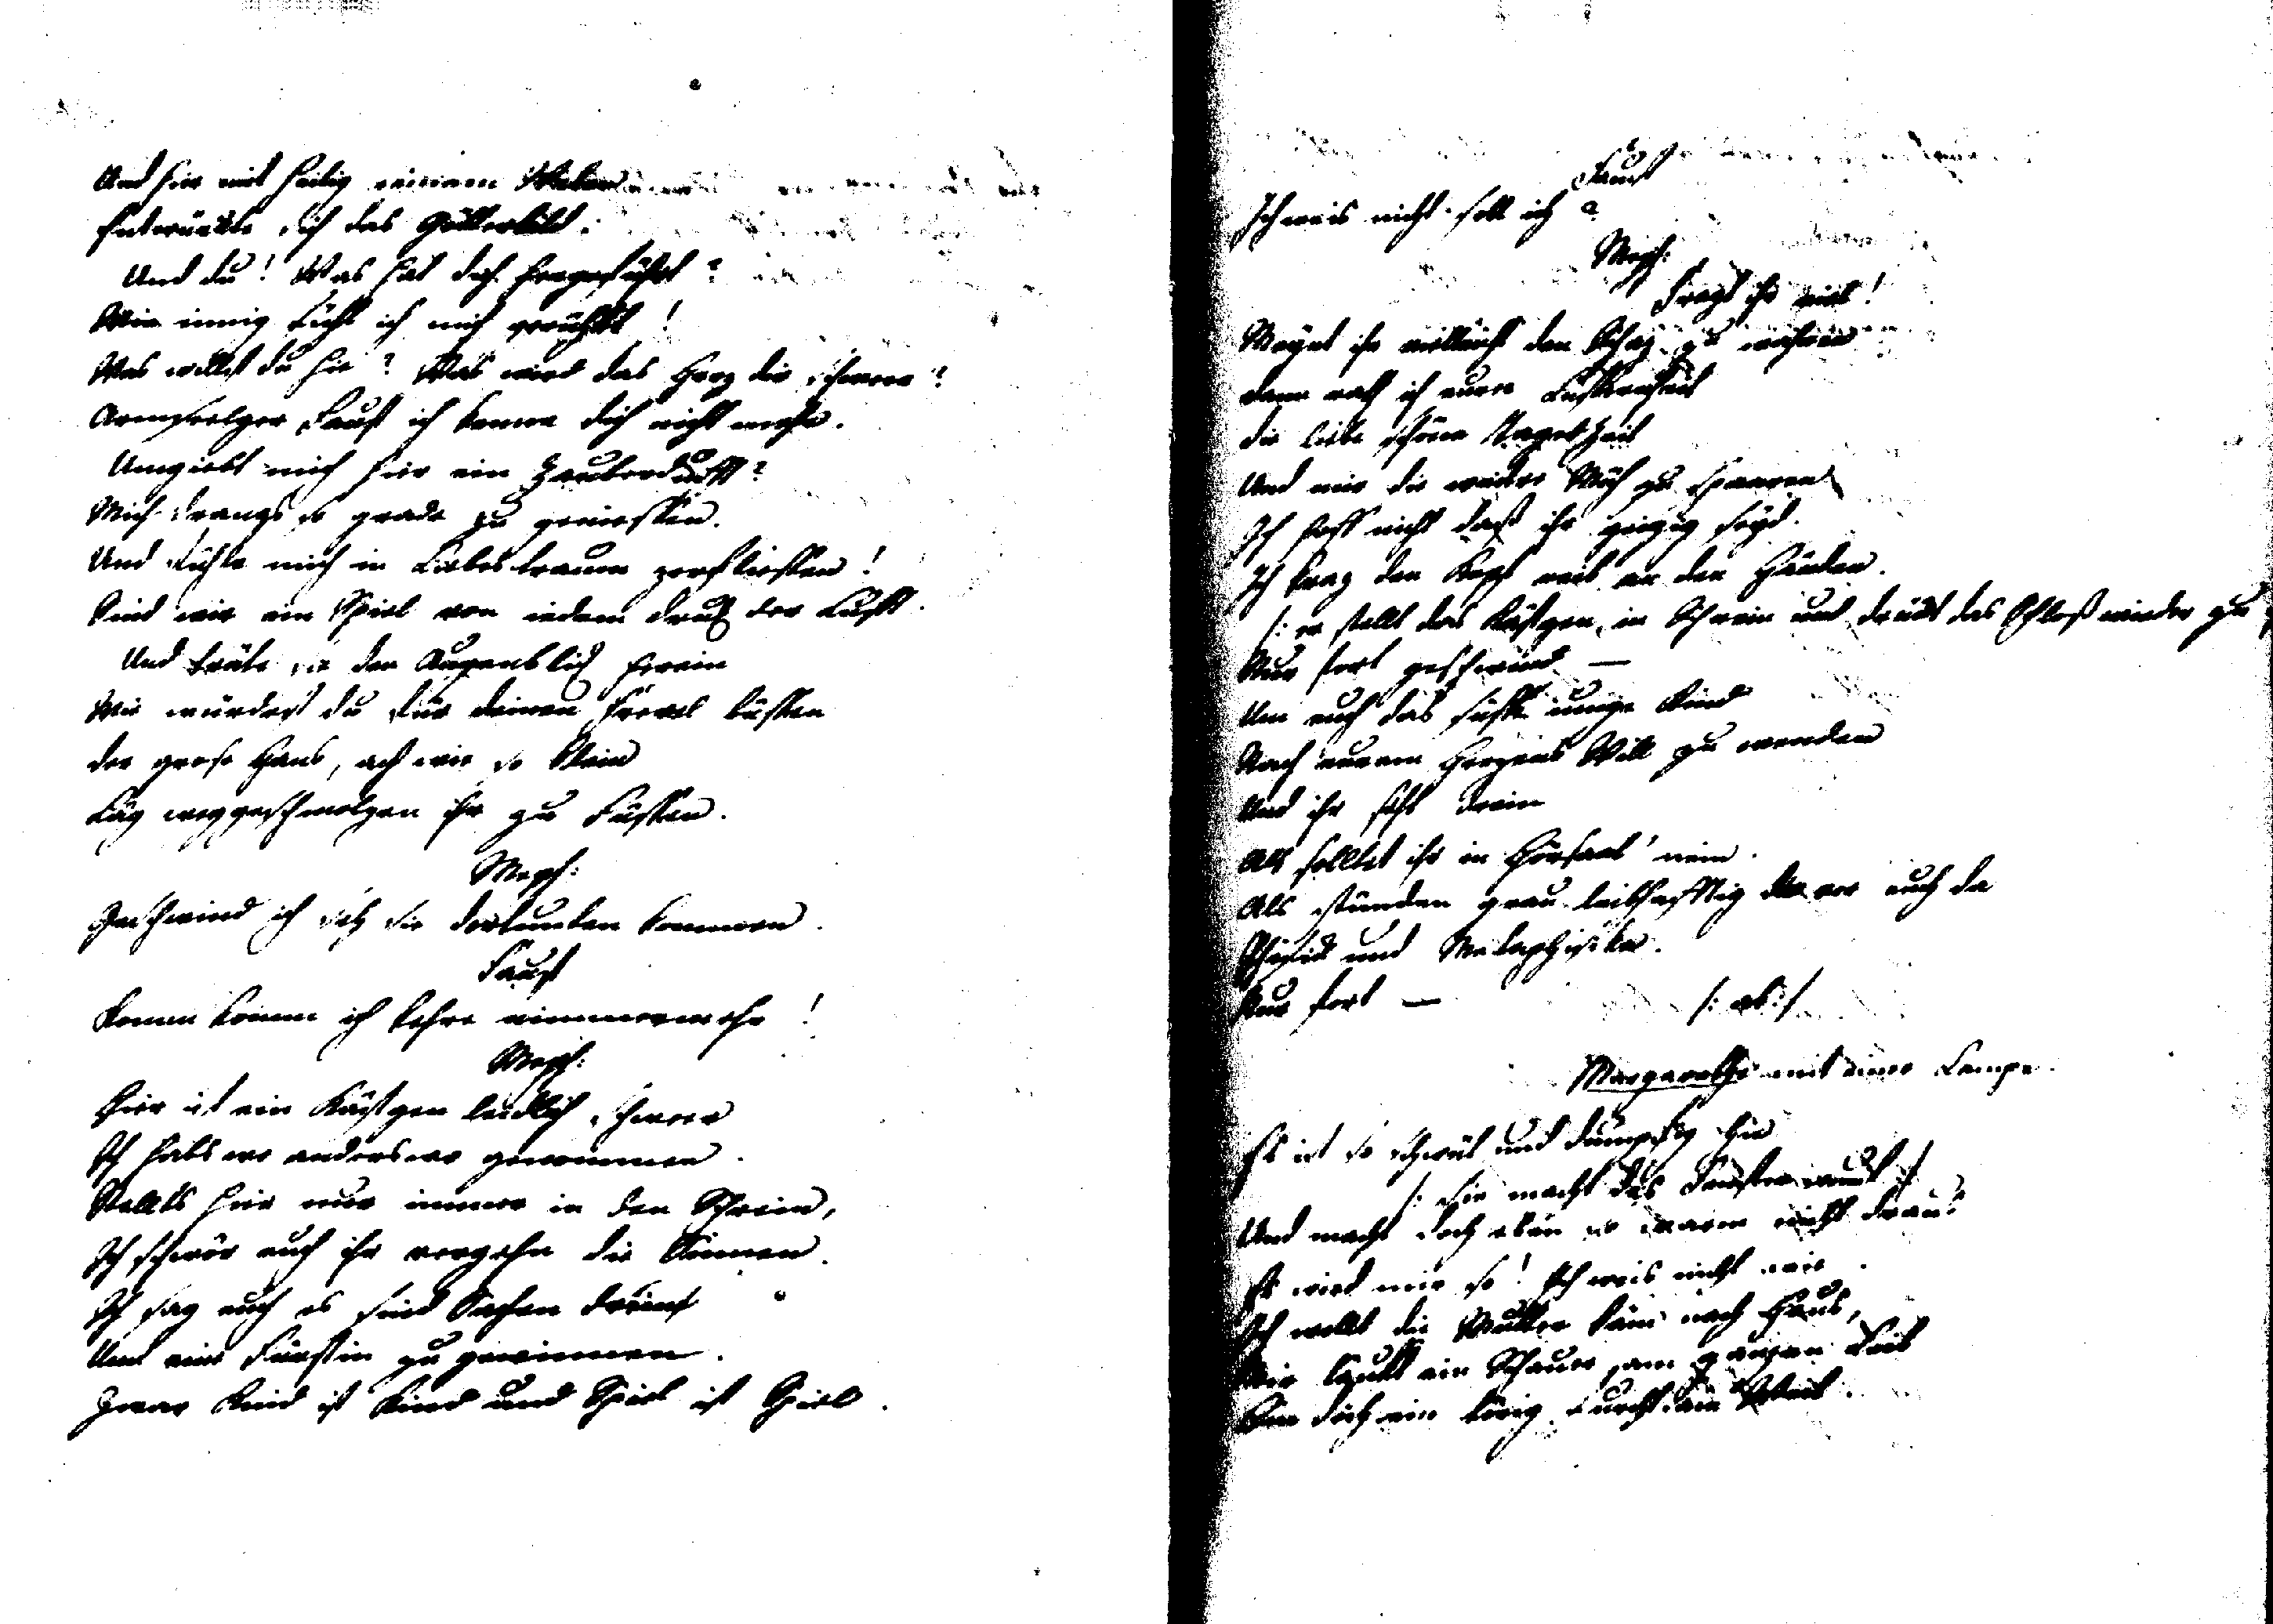 Und hier mit heilig reinem Weben
Entwürckte sich das Götterbild.
Und du! Was hat dich hergeführt?
Wie innig fühl ich mich gerührt!
Was willst du hie? Was wird das Herz dir schweer?
Armseelger Faust ich kenne dich nicht mehr.
Umgiebt mich hier ein Zauberdufft?
Mich drangs so grade zu geniessen.
Und fühle mich in Liebestraum zerfliessen!
Sind wir ein Spiel von iedem Druck der Lufft.
Und träte sie den Augenblick herein
Wie würdest du für deinen Frevel büssen
der grose Hans, ach wie so klein
Läg weggeschmolzen ihr zu Füssen.
Meph:
Geschwind ich seh sie dortunten kommen.
Faust
Komm komm ich kehre nimmermehr!
Meph:
Hier ist ein Kästgen leidlich schweer
Ich habs wo anderswo genommen.
Stellts hier nur immer in den Schrein,
Ich schwör euch ihr vergehn die Sinnen.
Ich sag euch es sind Sachen drein
Um eine Fürstin zu gewinnen.
Zwar Kind ist Kind und Spiel ist Spiel.
Faust
Ich weis nicht soll ich?
Meph:
Fragt ihr viel!
Meynt ihr vielleicht den Schaz zu wahren
dann rath ich eurer Lüsternheit
die liebe schöne Tageszeit
Und mir die weitre Müh zu spaaren
Ich hoff nicht dass ihr geizig seyd.
Ich kraz den Kopf reib an den Händen.
/: er stellt das Kästgen in Schrein und drückt das Schloß wieder zu
Nur fort geschwind —
Um euch das süsse iunge Kind
Nach eurem Herzens Will zu wenden
Und ihr seht drein
Als solltet ihr in Hörsaal 'nein.
Als stünden grau leibhafftig vor euch da
Phisick und Metaphisika.
Nur fort — /: ab :/
Margarethe mit einer Lampe.
Es ist so schwül und dumpfig hie
/: sie macht das Fenster auf :/
Und macht doch eben so warm nicht draus
Es wird mir so! Ich weis nicht wie.
Ich wollt die Mutter käm nach Haus,
Mir läufft ein Schauer am ganzen Leib
Binn doch ein törig furchtsam Weib.